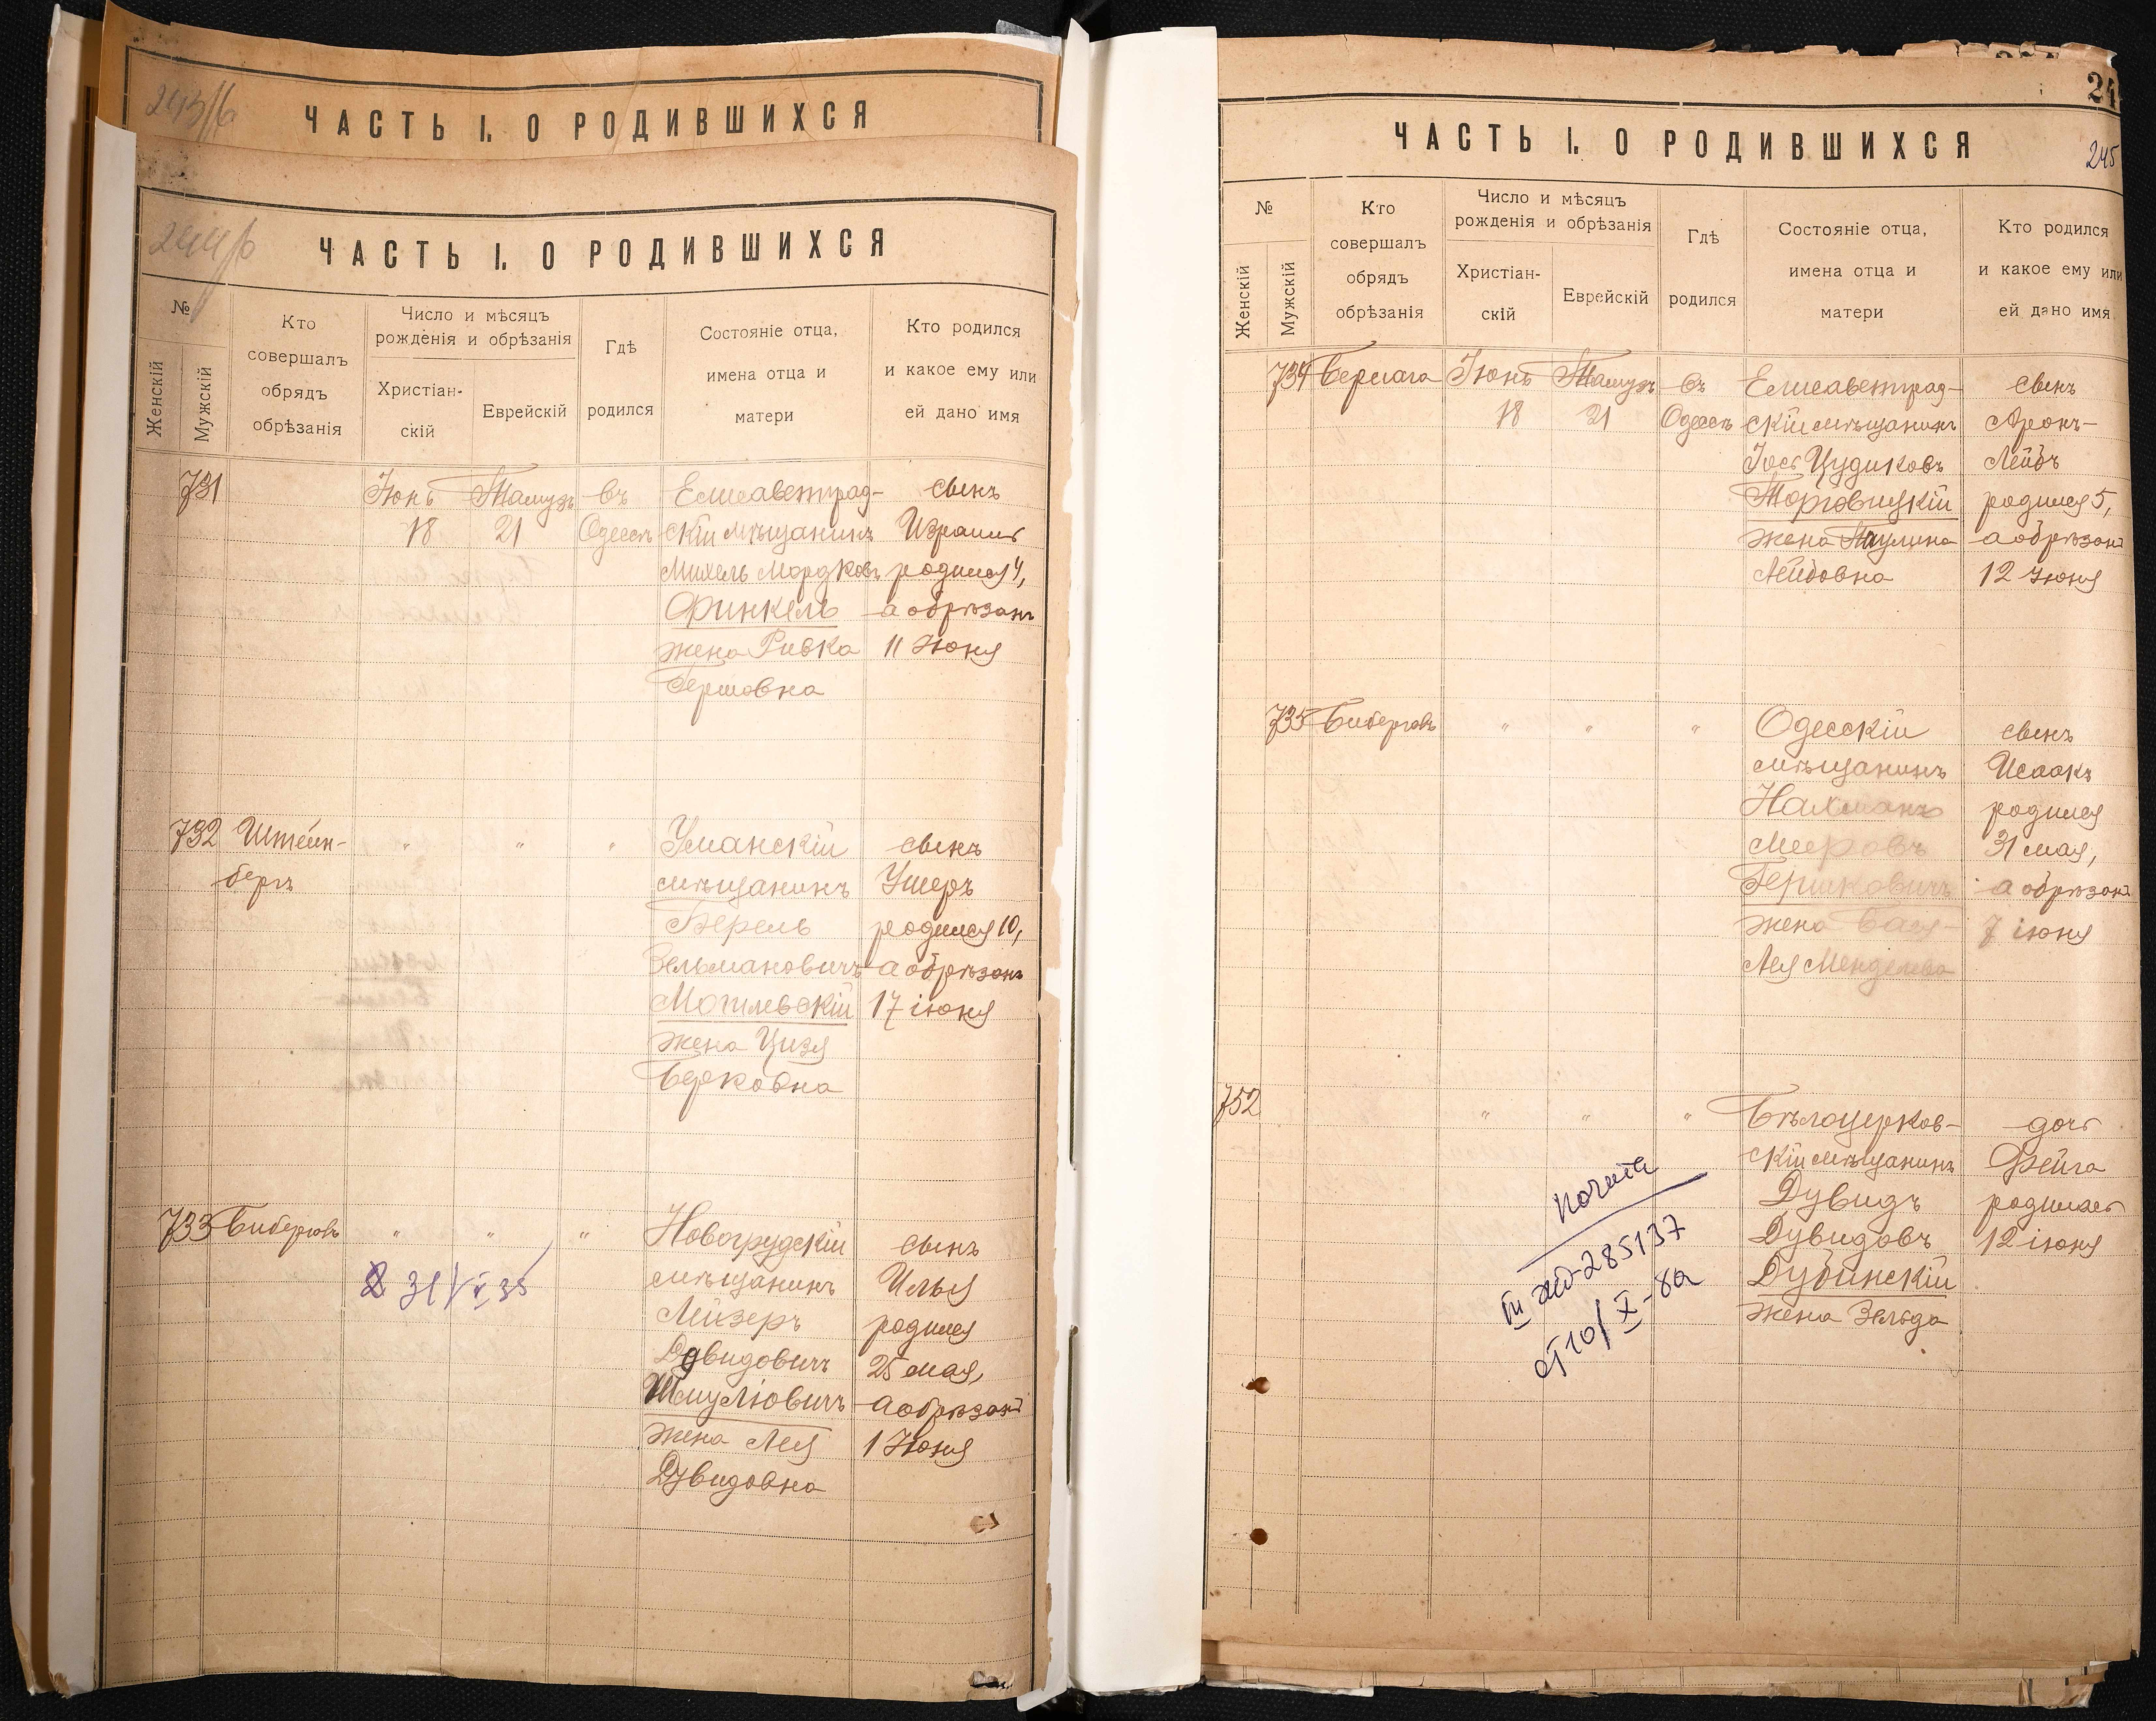 243/б
ЧАСТЬ I. О РОДИВШИХСЯ
244/б
ЧАСТЬ I. О РОДИВШИХСЯ
№
Женскій
Мужскій
Кто
совершалъ
обрядъ
обрѣзанія
Число и мѣсяцъ
рожденія и обрѣзанія
Христіан-
скій
Еврейскій
Гдѣ
родился
Состояніе отца,
имена отца и
матери
Кто родился
и какое ему или
ей дано имя
731
Іюнь
18
Тамузъ
21
въ
Одессѣ
Елисаветград-
скій мѣщанинъ
Михель Мордковъ
Финкель
жена Ривка
Гершовна
сынъ
Израиль
родился 4,
а обрѣзанъ
11 Іюня
732
Штейн-
бергъ
" " "
Уманскій
мѣщанинъ
Берель
Зельмановичъ
Могилевскій
жена Цизя
Берковна
сынъ
Ушеръ
родился 10,
а обрѣзанъ
17 іюня
733
Биберговъ
" " "
31/ 35
Новогрудскій
мѣщанинъ
Лейзеръ
Довидовичъ
Шмуліовичъ
жена Лея
Дувидовна
сынъ
Илья
родился
25 мая,
а обрѣзанъ
1 Іюня
24
ЧАСТЬ I. О РОДИВШИХСЯ
245
№
Женскій
Мужскій
Кто
совершалъ
обрядъ
обрѣзанія
Число и мѣсяцъ
рожденія и обрѣзанія
Христіан-
скій
Еврейскій
Гдѣ
родился
Состояніе отца,
имена отца и
матери
Кто родился
и какое ему или
ей дано имя
734
Іюнь
18
Тамузъ
21
въ
Одессѣ
Елисаветград-
скій мѣщанинъ
Іось Цудиковъ
Торговицкій
жена Паулина
Лейбовна
сынъ
Аронъ-
Лейбъ
родился 5,
а обрѣзанъ
12 Іюня
735
Биберговъ
" " "
Одесскій
мѣщанинъ
Нахманъ
Мееровъ
Гершковичъ
жена Бася-
Лея Менделева
сынъ
Исаакъ
родился
31 мая,
а обрѣзанъ
7 іюня
752
" " "
Бѣлоцерков-
скій мѣщанинъ
Дувидъ
Дувидовъ
Дубинскій
жена Зельда
дочь
Фейга
родилась
12 іюня
III 285137
от 10/X-8